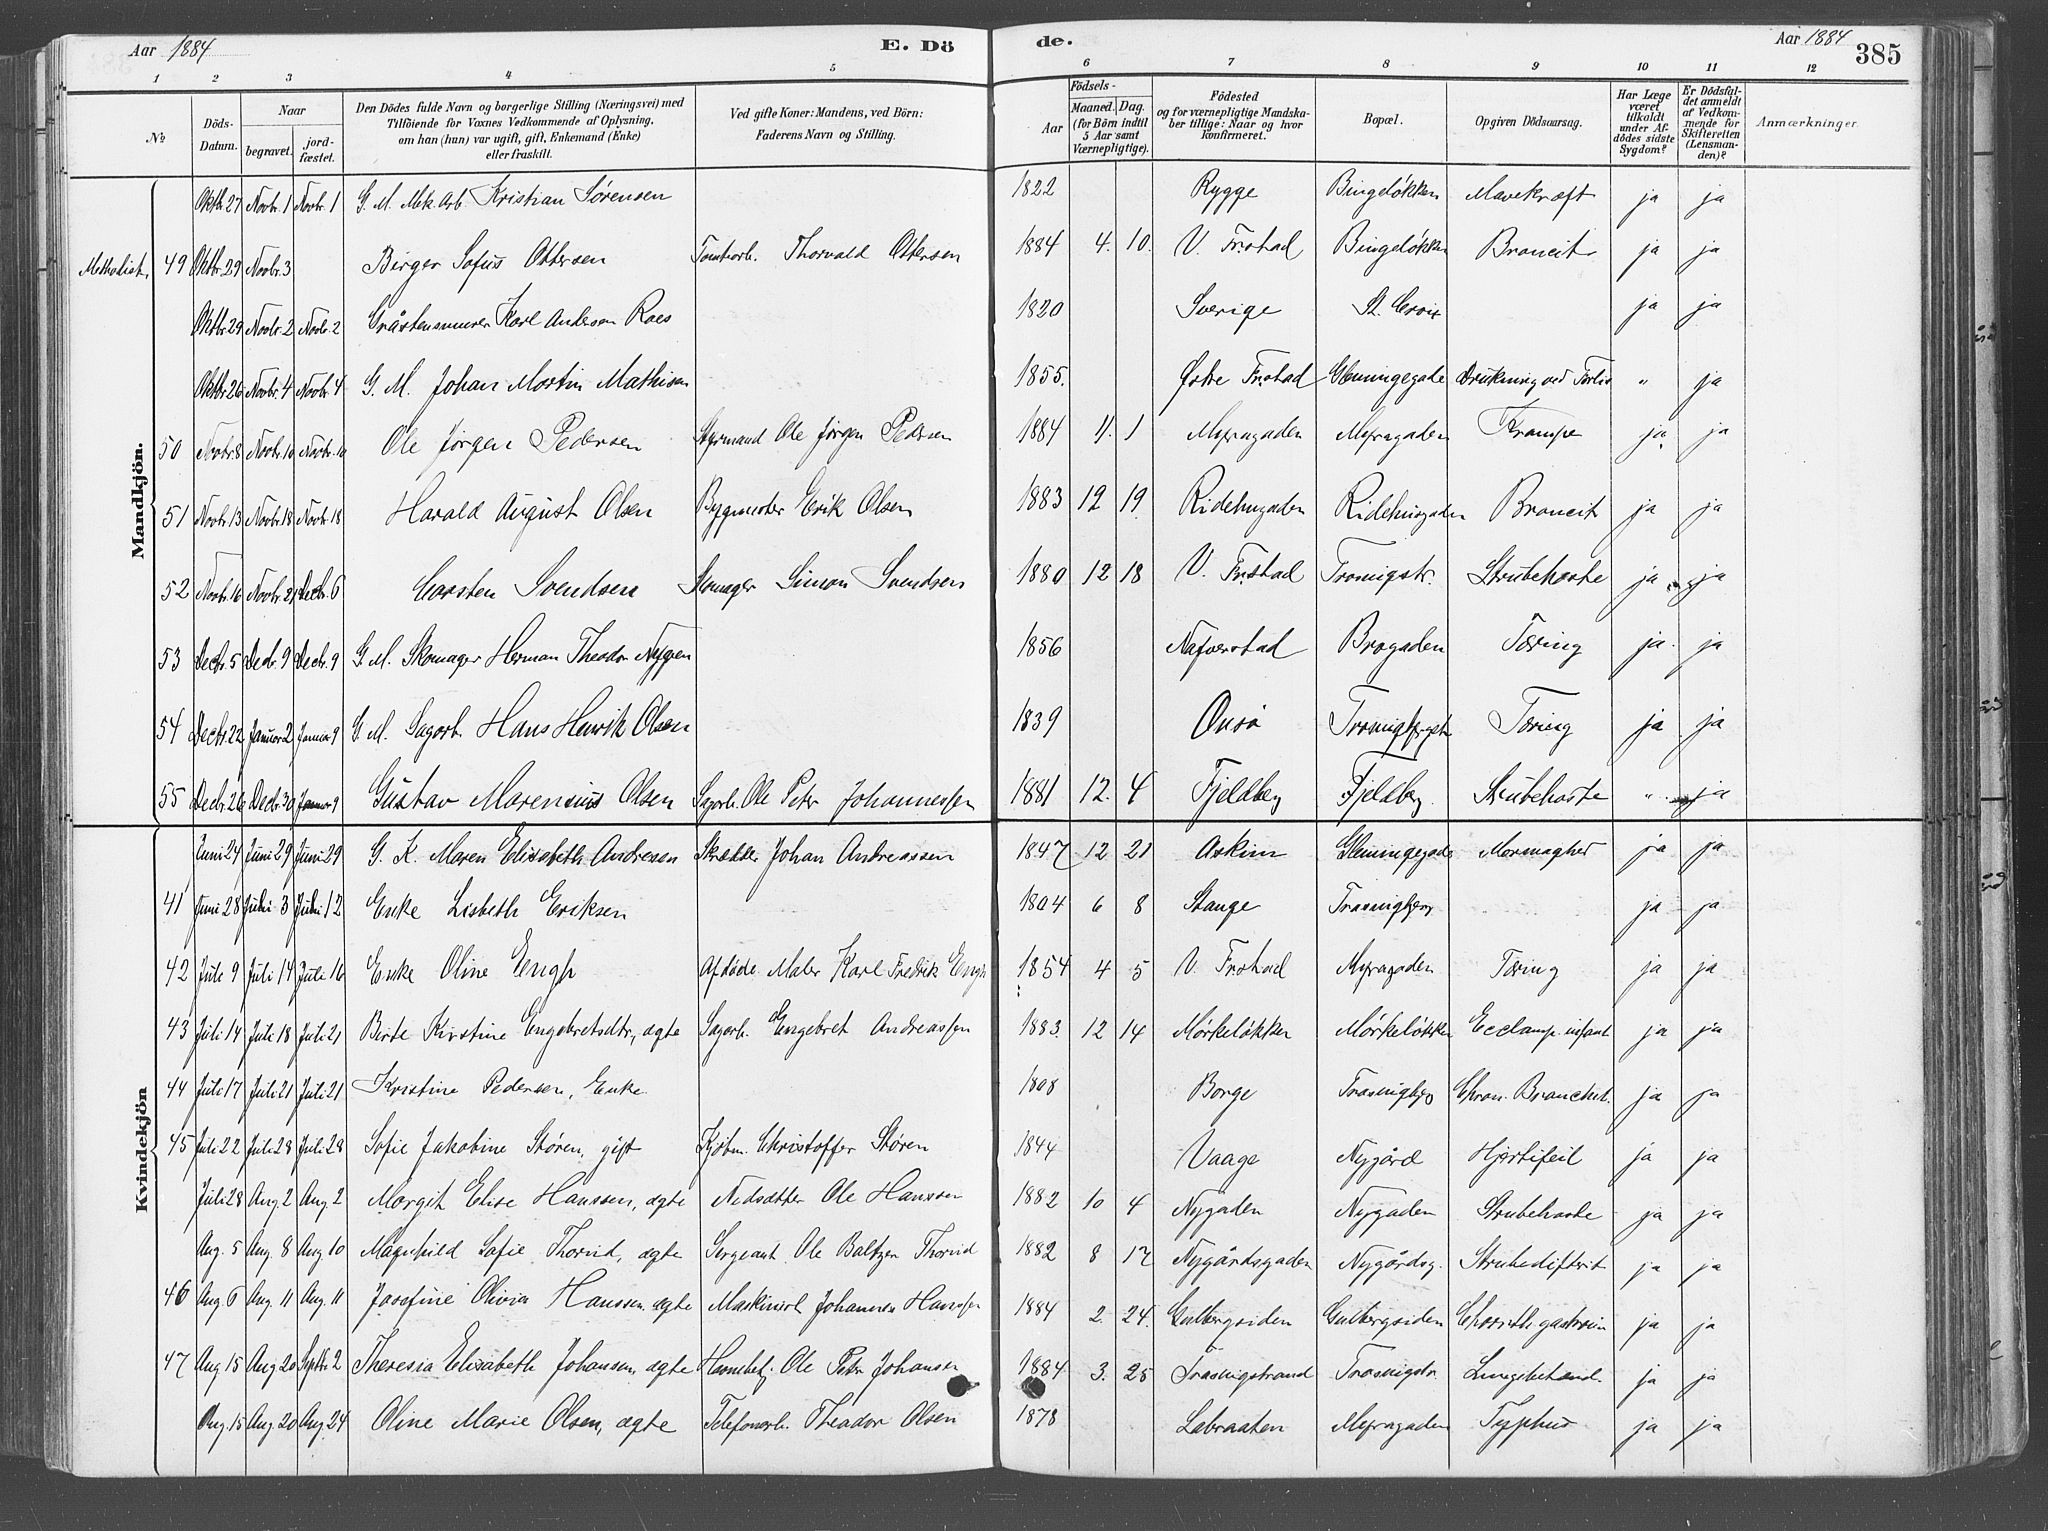 Aar 1884 E. Dö de. Aar 1884 385
1 2 3 4 5 6 7 8 9 10 11 12
No Döds-Datum. Naar begravet. jordfæstet. Den Dödes fulde Navn og borgerlige Stilling (Næringsvei) med Tilföiende for Voxnes Vedkommende af Oplysning, om han (hun) var ugift, gift, Enkemand (Enke) eller fraskilt. Ved gifte Koner: Mandens, ved Börn: Faderens Navn og Stilling. Födsels- Aar Maaned. Dag. (for Börn indtil 5 Aar samt Værnepligtige). Födested og for værnepligtige Mandskaber tillige: Naar og hvor konfirmeret. Bopæl. Opgiven Dödsaarsag. Har Læge været tilkaldt under Afdödes sidste Sygdom? Er Dödsfaldet anmeldt af Vedkommende for Skifteretten (Lensmanden)? Anmærkninger.
Mandkjön.
Oktbr 27 Novbr. 1 Novbr. 1 G. M. Mek. Arb. Kristian Sørensen 1822 Rygge Bingeløkken Mavekræft ja ja
Methodist. 49 Oktbr. 29 Novbr. 3 Birger Sofus Ottersen Tomtearb. Thorvald Ottersen 1884 4. 10. V. Frstad Bingeløkken Broncit ja ja
Oktbr. 29 Novbr. 2 Novbr. 2 Gråstensmurer Karl Andersen Roes 1820 Sverige St. Croix ja ja
Oktbr 26 Novbr. 4 Novbr. 4 G. M. Johan Martin Mathisen 1855. Østre Frstad Glemmingegade Drukning ved " ja
50 Novbr. 8 Novbr. 10 Novbr. 10 Ole Jørgen Pedersen Styrmand Ole Jørgen Pedersen 1884 1 Myragaden Myragaden Krampe ja. ja
51 Novbr. 13 Novbr. 18 Novbr. 18 Harald August Olsen Bygmester Erik Olsen 1883 12 19 Ridehusgaden Ridehusgaden Broncit ja ja
52 Novbr. 16 Novbr. 21 Decbr. 6 Carsten Svendsen Skomager Simon Svendsen 1880 12 18 V. Frstad Trosvigstr. Strubehoste ja ja
53 Decbr. 5 Decbr. 9 Decbr. 9 G. M. Skomager Herman Theodor Nygren 1856 Nafverstad Brogaden Tæring ja ja
54 Decbr. 22 Januar 2 Januar 9 G. M. Sagarb. Hans Henrik Olsen 1839 Onsø Tæring ja ja
55 Decbr. 26 Decbr. 30 Januar 9 Gustav Marensius Olsen Sagarb. Ole Peter Johannessen 1881 12. 4 Fjeldberg Fjeldberg. Strubehoste " ja
Kvindekjön
Juni 24 Juni 29 Juni 29 G. K. Maren Elisabeth Andresen Skrædder Johan Andreassen 1847 12 21 Askim Glemmingegade ja ja
41 Juni 28 Juli 3 Juli 12 Enke Lisbeth Eriksen 1804 6 8 Stange Trosvigberg ja ja
42 Juli 9 Juli 14 Juli 16 Enke Oline Engh Afdøde Maler Karl Fredrik Engh 1854 4 5 V. Frstad Myragaden Tæring ja ja
43 Juli 14 Juli 18 Juli 21 Birte Kirstine Engebretsdtr, ægte Sagarb. Engebret Andreassen 1883. 12 14 Mørkeløkken Mørkeløkken Ecclamp. infant ja ja
44 Juli 17 Juli 21 Juli 21 Kristine Pedersen, Enke. 1808 Borge Trosvigberg Chron. Bronchit. ja ja
45 Juli 22 Juli 28 Juli 28 Sofie Jakobine Støren, gift Kjøbm. Christoffer Støren 1844 Vaage Nygård Hjertefeil ja ja
Juli 28 Aug. 2 Aug. 2 Margit Elise Hanssen, ægte Ole Hanssen 1882 10 4 Nygaden Nygaden Strubehoste ja ja
Aug. 5 Aug. 8 Aug. 10 Magnhild Sofie Thorvid, ægte Sergeant Ole Baltzer Thorvid 1882 8 17 Nygårdsgaden Nygårdsg. Strubedifterit ja ja
46 Aug. 6 Aug. 11 Aug. 11 Josefine Olivia Hanssen, ægte Maskinist Johannes Hanssen 1884 2. 24. Gulbergsiden Gulbergsiden ja ja
47 Aug 15 Aug 20 Septbr. 2 Theresia Elisabeth Johansen, ægte Ole Petr Johansen 1884 3. 25 Trosvigstrand Trosvigstr. Lungebetænd. ja ja
Aug. 15 Aug. 20 Aug. 24 Oline Marie Olsen, ægte Telefonarb. Theodor Olsen 1878 Labraaten Myragaden Typhus ja ja